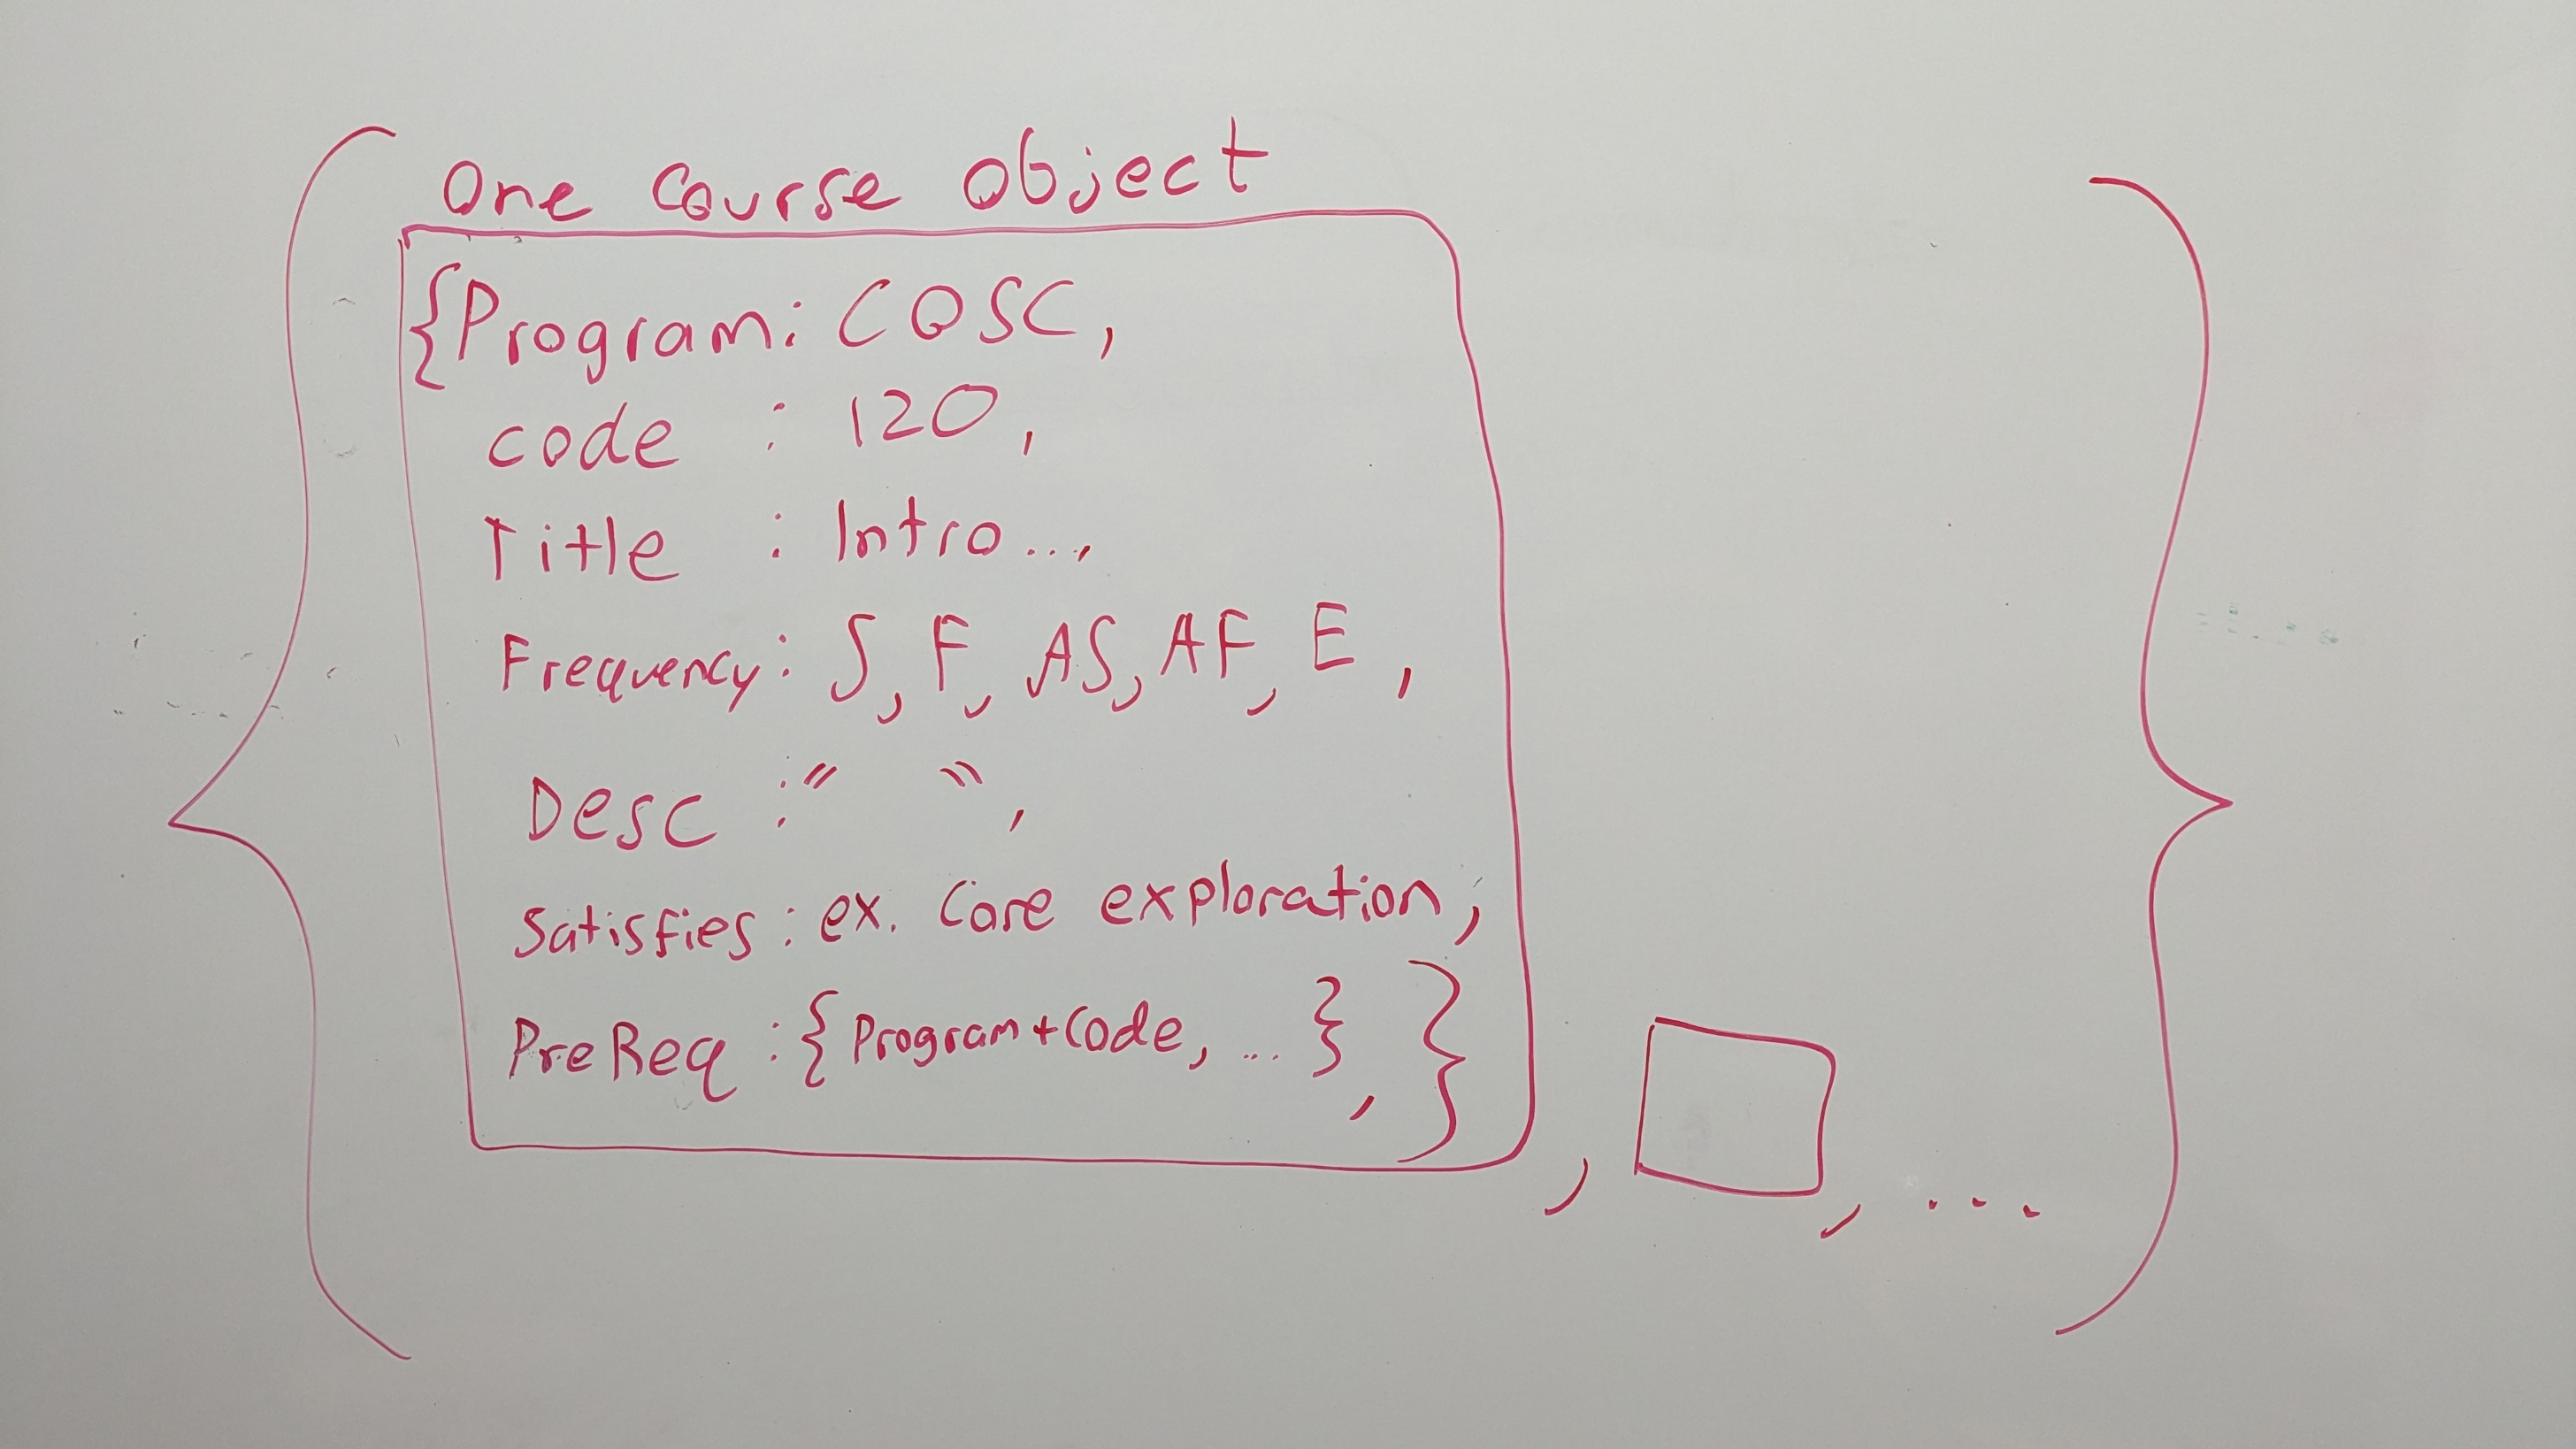 One Course Object
{Program: COSC,
code : 120,
Title : Intro...,
Frequency: S, F, AS, AF, E,
Desc : " ",
Satisfies: ex. Core exploration,
PreReq : {Program+Code, ... }, }
, , ...